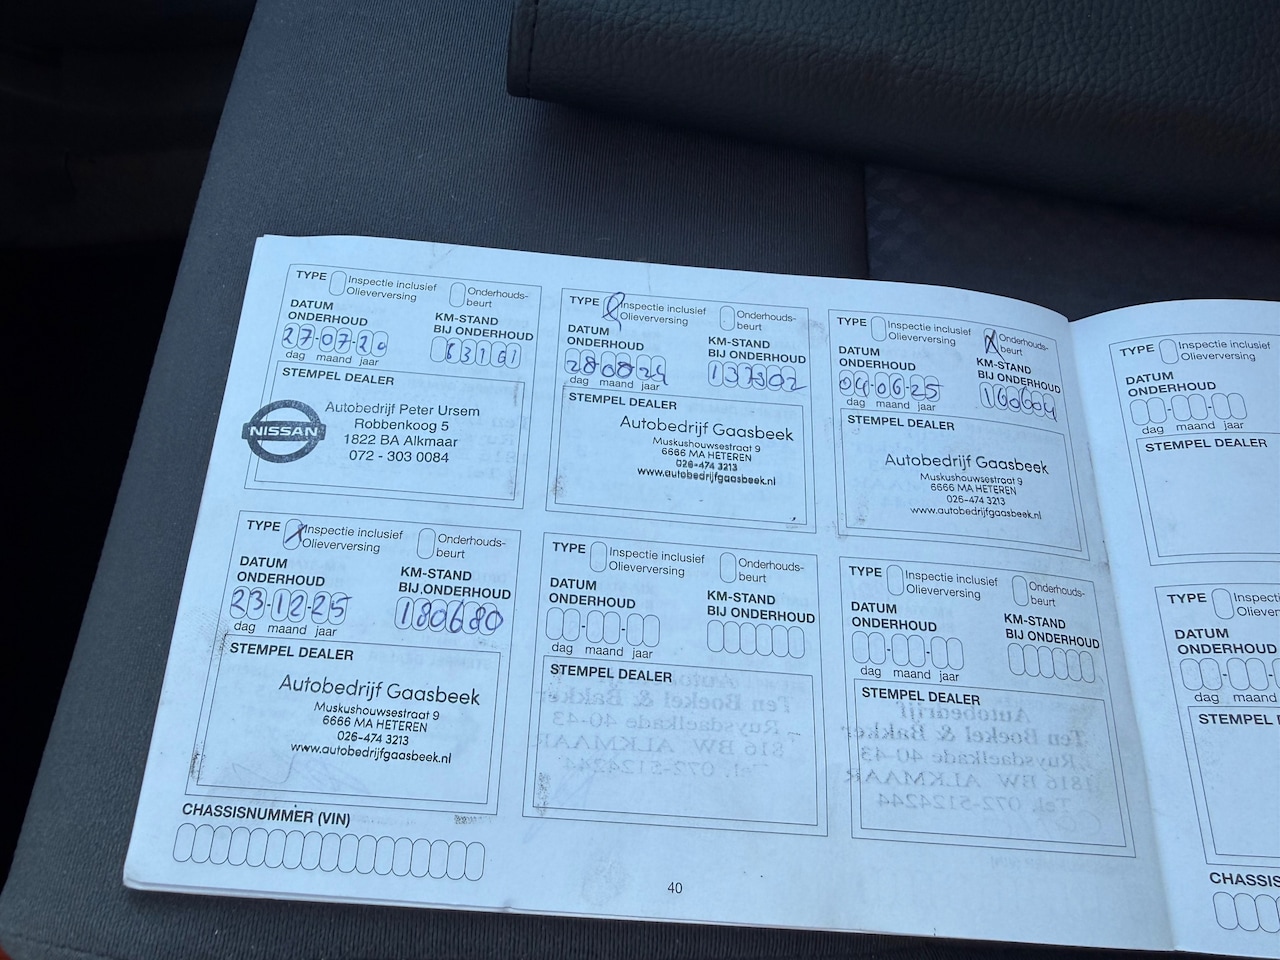 TYPE Inspectie inclusief Olieverversing Onderhouds-beurt
DATUM ONDERHOUD KM-STAND BIJ ONDERHOUD
27-07-20 63161
dag maand jaar
STEMPEL DEALER
NISSAN
Autobedrijf Peter Ursem
Robbenkoog 5
1822 BA Alkmaar
072 - 303 0084
TYPE Inspectie inclusief Olieverversing Onderhouds-beurt
DATUM ONDERHOUD KM-STAND BIJ ONDERHOUD
28-08-24 137302
dag maand jaar
STEMPEL DEALER
Autobedrijf Gaasbeek
Muskushouwsestraat 9
6666 MA HETEREN
026-474 3213
www.autobedrijfgaasbeek.nl
TYPE Inspectie inclusief Olieverversing Onderhouds-beurt
DATUM ONDERHOUD KM-STAND BIJ ONDERHOUD
04-06-25 160604
dag maand jaar
STEMPEL DEALER
Autobedrijf Gaasbeek
Muskushouwsestraat 9
6666 MA HETEREN
026-474 3213
www.autobedrijfgaasbeek.nl
TYPE Inspectie inclusief Olieverversing Onderhouds-beurt
DATUM ONDERHOUD KM-STAND BIJ ONDERHOUD
23-12-25 180680
dag maand jaar
STEMPEL DEALER
Autobedrijf Gaasbeek
Muskushouwsestraat 9
6666 MA HETEREN
026-474 3213
www.autobedrijfgaasbeek.nl
TYPE Inspectie inclusief Olieverversing Onderhouds-beurt
DATUM ONDERHOUD KM-STAND BIJ ONDERHOUD
dag maand jaar
STEMPEL DEALER
TYPE Inspectie inclusief Olieverversing Onderhouds-beurt
DATUM ONDERHOUD KM-STAND BIJ ONDERHOUD
dag maand jaar
STEMPEL DEALER
CHASSISNUMMER (VIN)
40
TYPE Inspectie inclusief Olieverversing
DATUM ONDERHOUD
dag maand jaar
STEMPEL DEALER
TYPE
DATUM ONDERHOUD
dag maand